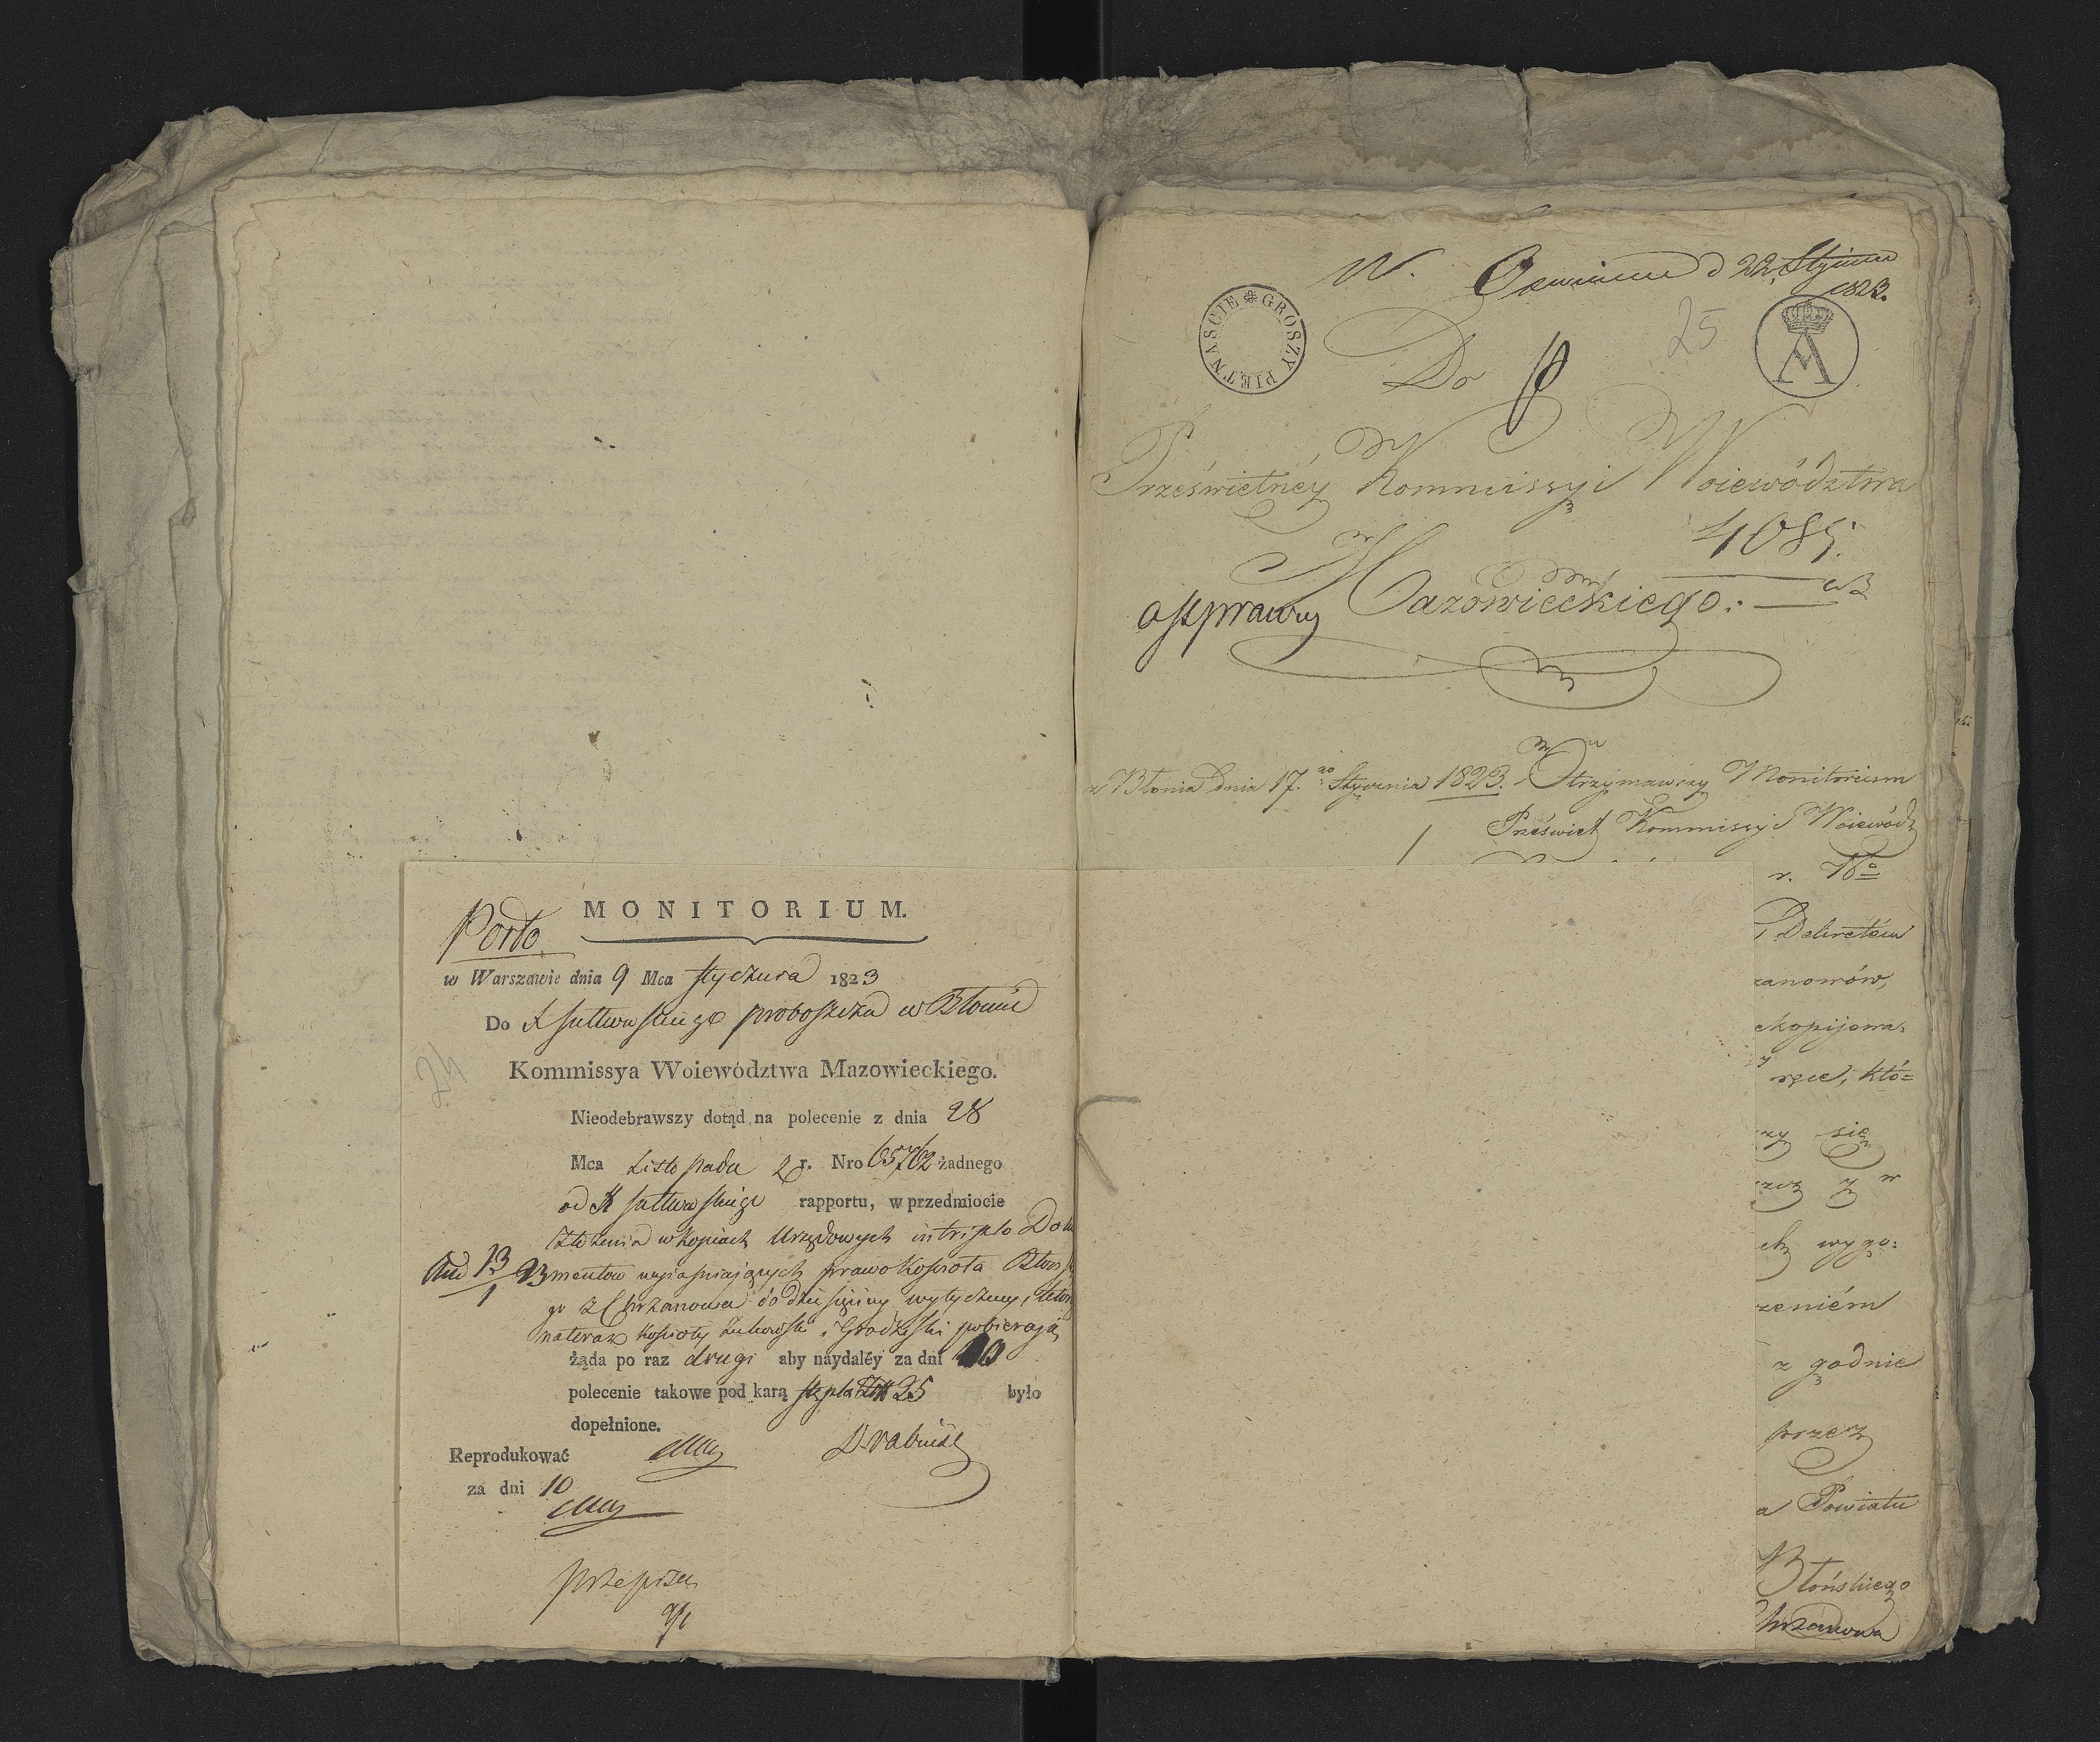 MONITORIUM.
Porto
w Warszawie dnia 9 Mca stycznia 1823
Do X proboszcza w Błoniu
24
Kommissya Woiewództwa Mazowieckiego.
Nieodebrawszy dotąd na polecenie z dnia 28
Mca Listopada 2 r. Nro 65762 żadnego
od X rapportu, w przedmiocie
złożenia w kopiach Urzędowych Doku
13/1 23 mentow wyiaśniaiących prawo Kościoła Błońs
go z Chrzanowa do dziesięciny wytyczney, którą
nateraz Kościoły Żukowski i Grodziski pobieraią,
żąda po raz drugi aby naydaléy za dni 10
polecenie takowe pod karą 25 było
dopełnione.
Reprodukować
za dni 10
przepisać
9/1
W. d 22 Stycznia
1823.
GROSZY PIĘTNAŚCIE
25
A
Do
Prześwietnéy Kommissyi Woiewództwa
4085.
Mazowieckiego.
z Błonia dnia 17.go Stycznia 1823. Otrzymawszy Monitorium
Przeświet Kommissyi Woiewódz
r. No
Dekretów
zanowów,
ekopijowa=
ręce, któ=
zy się
ch wygo:
zeniém
zgodnie
przez
a Powiatu
Błońskiego
Chrzanowa